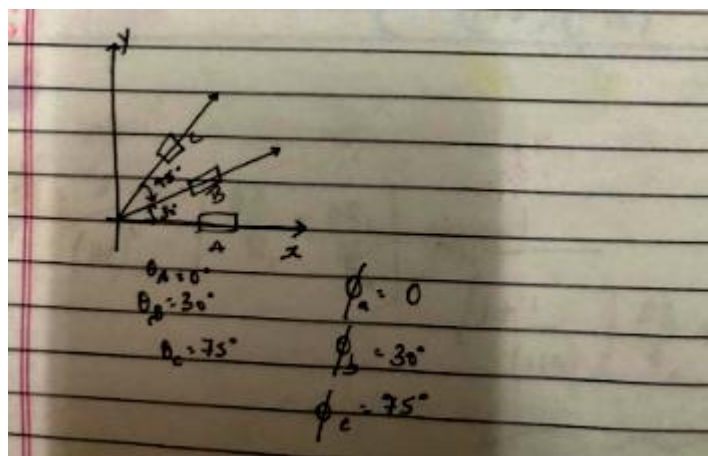 y
C
45°
B
30°
A
x
θ_A = 0°
θ_B = 30°
θ_c = 75°
ϕ_a = 0
ϕ_b = 30°
ϕ_c = 75°